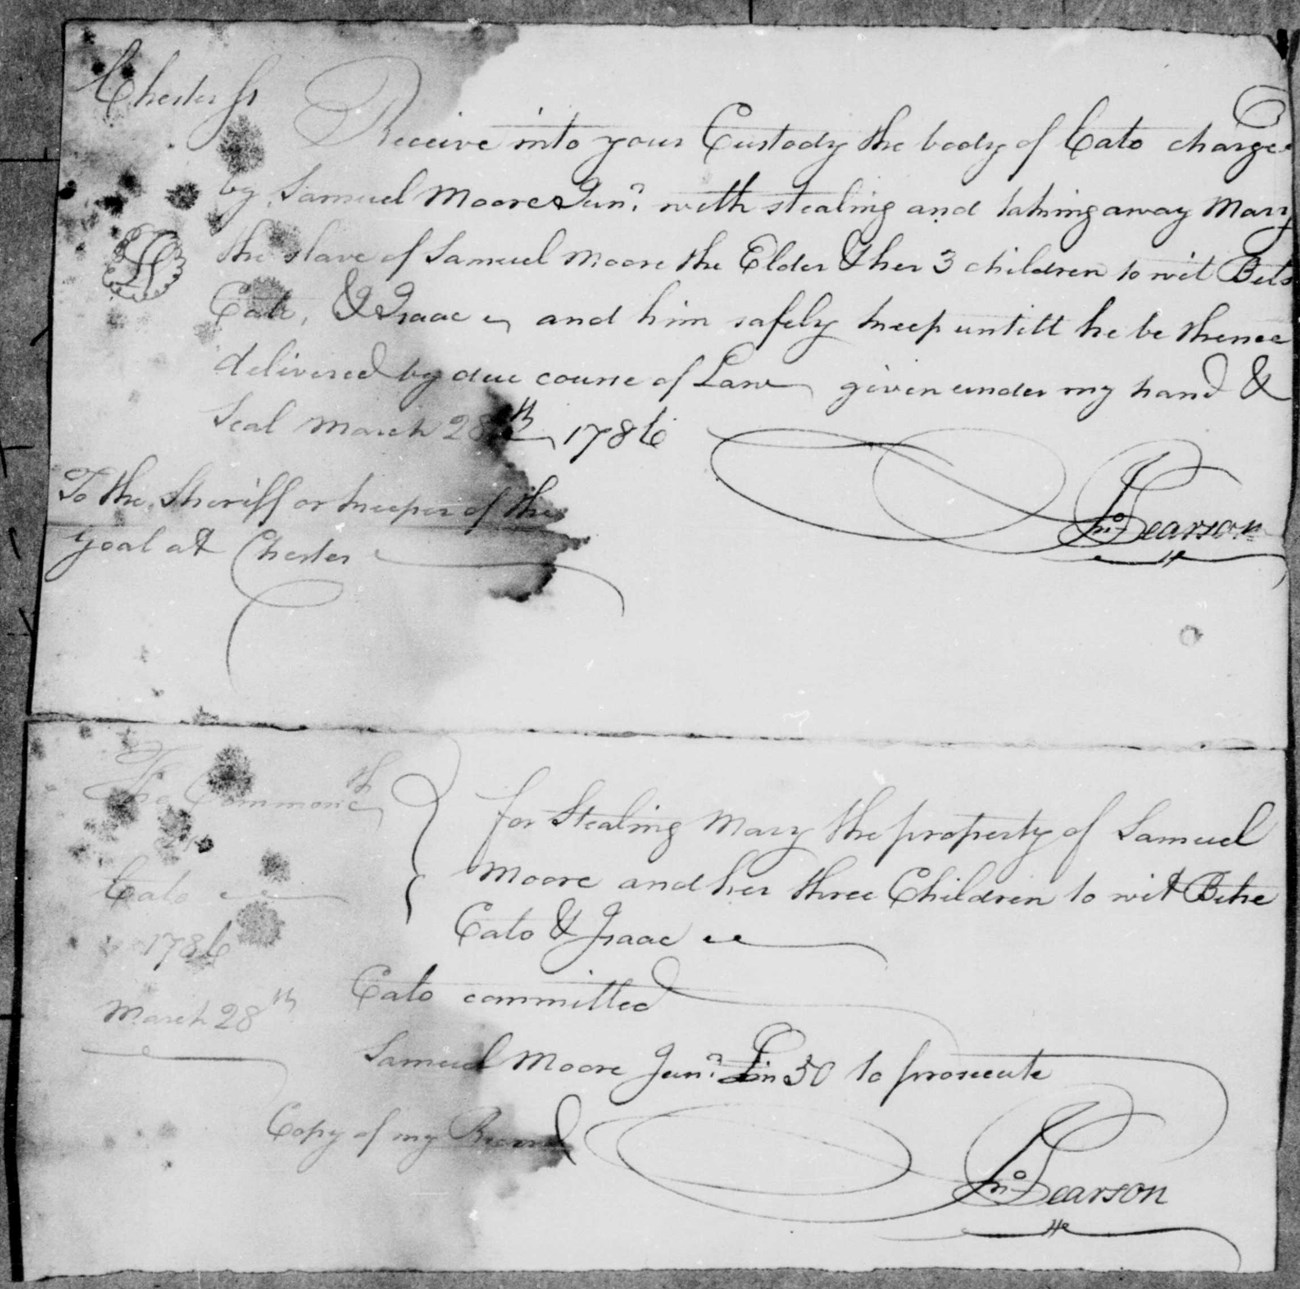 Chester ss
Receive into your Custody the body of Cato charge
by Samuel Moore Junr. with stealing and taking away Mary
the slave of Samuel Moore the Elder & her 3 children to wit Bets
Cato, & Isaac and him safely keep untill he be thence
delivered by due course of Law given under my hand &
Seal March 28th 1786
Jno. Pearson
To the Sheriff or keeper of the
Goal at Chester
The Commonth
vs
Cato
1786
March 28th
for Stealing Mary the property of Samuel
Moore and her three Children to wit Betse
Cato & Isaac
Cato committed
Samuel Moore Junr. in £50 to prosecute
Copy of my Record
Jno. Pearson